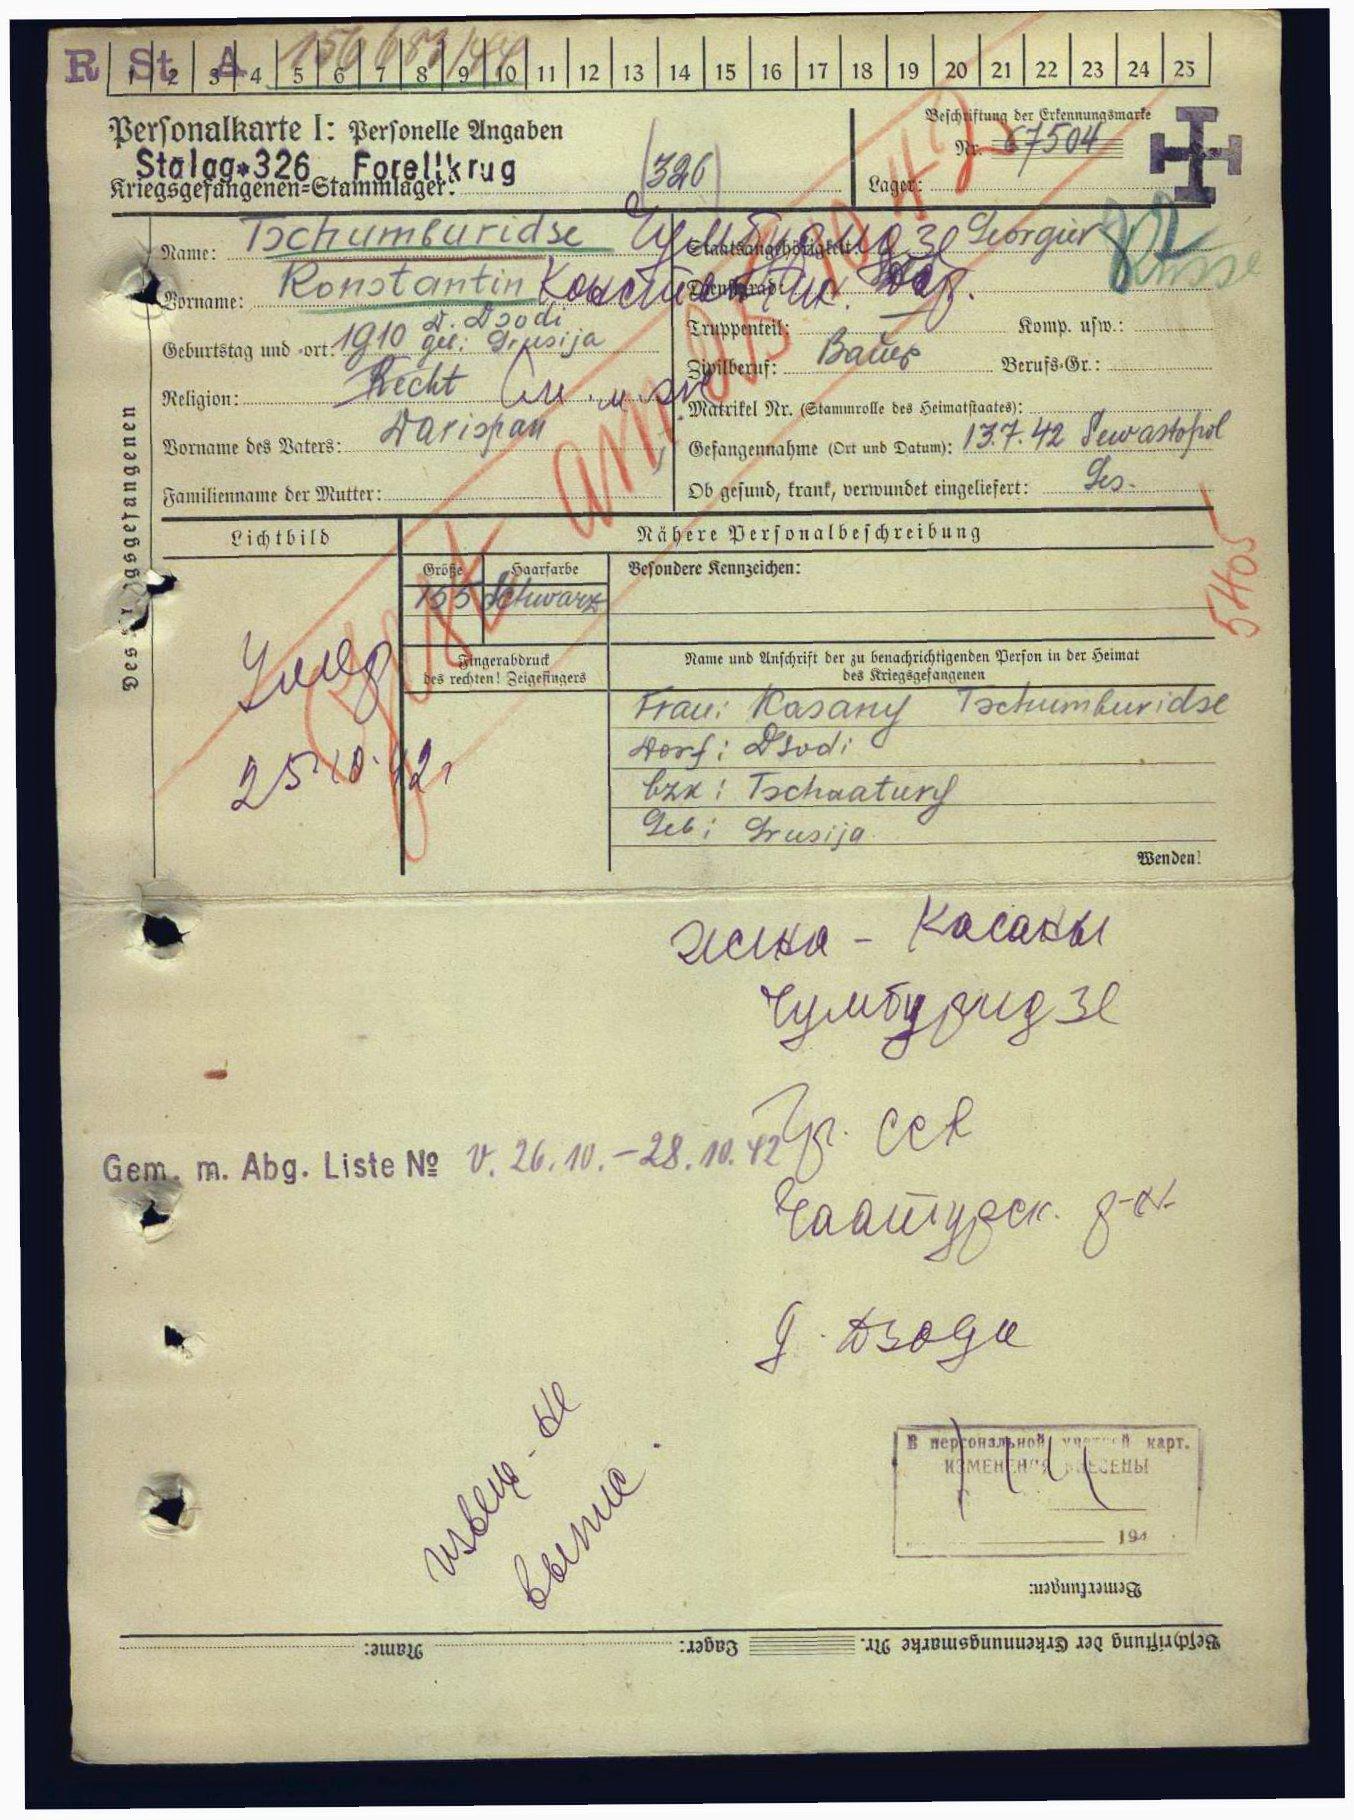 R St A 156683/44
1 2 3 4 5 6 7 8 9 10 11 12 13 14 15 16 17 18 19 20 21 22 23 24 25
Personalkarte I: Personelle Angaben
Stalag*326 Forellkrug
Kriegsgefangenen-Stammlager: (326)
Beschriftung der Erkennungsmarke
Nr. 67504
Lager:
Des Kriegsgefangenen
Name: Tschumburidse Чумбуридзе
Vorname: Konstantin Константин Дар.
Geburtstag und -ort: 1910 D. Dsodi
geb: Grusija
Religion:
Vorname des Vaters: Darispan
Familienname der Mutter:
Staatsangehörigkeit: Georgier
Russe
Dienstgrad: Sold.
Truppenteil: Komp. usw.:
Zivilberuf: Bauer Berufs-Gr.:
Matrikel Nr. (Stammrolle des Heimatstaates):
Gefangennahme (Ort und Datum): 13.7.42 Sewastopol
Ob gesund, krank, verwundet eingeliefert: Ges.
gest. am 25.10.42
5405
Lichtbild
Nähere Personalbeschreibung
Größe Haarfarbe
155 Schwarz
Besondere Kennzeichen:
Fingerabdruck
des rechten! Zeigefingers
Name und Anschrift der zu benachrichtigenden Person in der Heimat
des Kriegsgefangenen
Frau: Kasany Tschumburidse
Dorf: Dsodi
bzk: Tschaatury
Geb: Grusija
Wenden!
Умер
25.10.42г
жена - Касаны
Чумбуридзе
Гр. ССР
Gem. m. Abg. Liste № v. 26.10.-28.10.42
Чаатурск. р-н
д. Дзоди
извещ-не
выше.
В персональной учетной карт.
ИЗМЕНЕНИЯ ВНЕСЕНЫ
194
Bemerkungen:
Beschriftung der Erkennungsmarke Nr. Lager: Name: